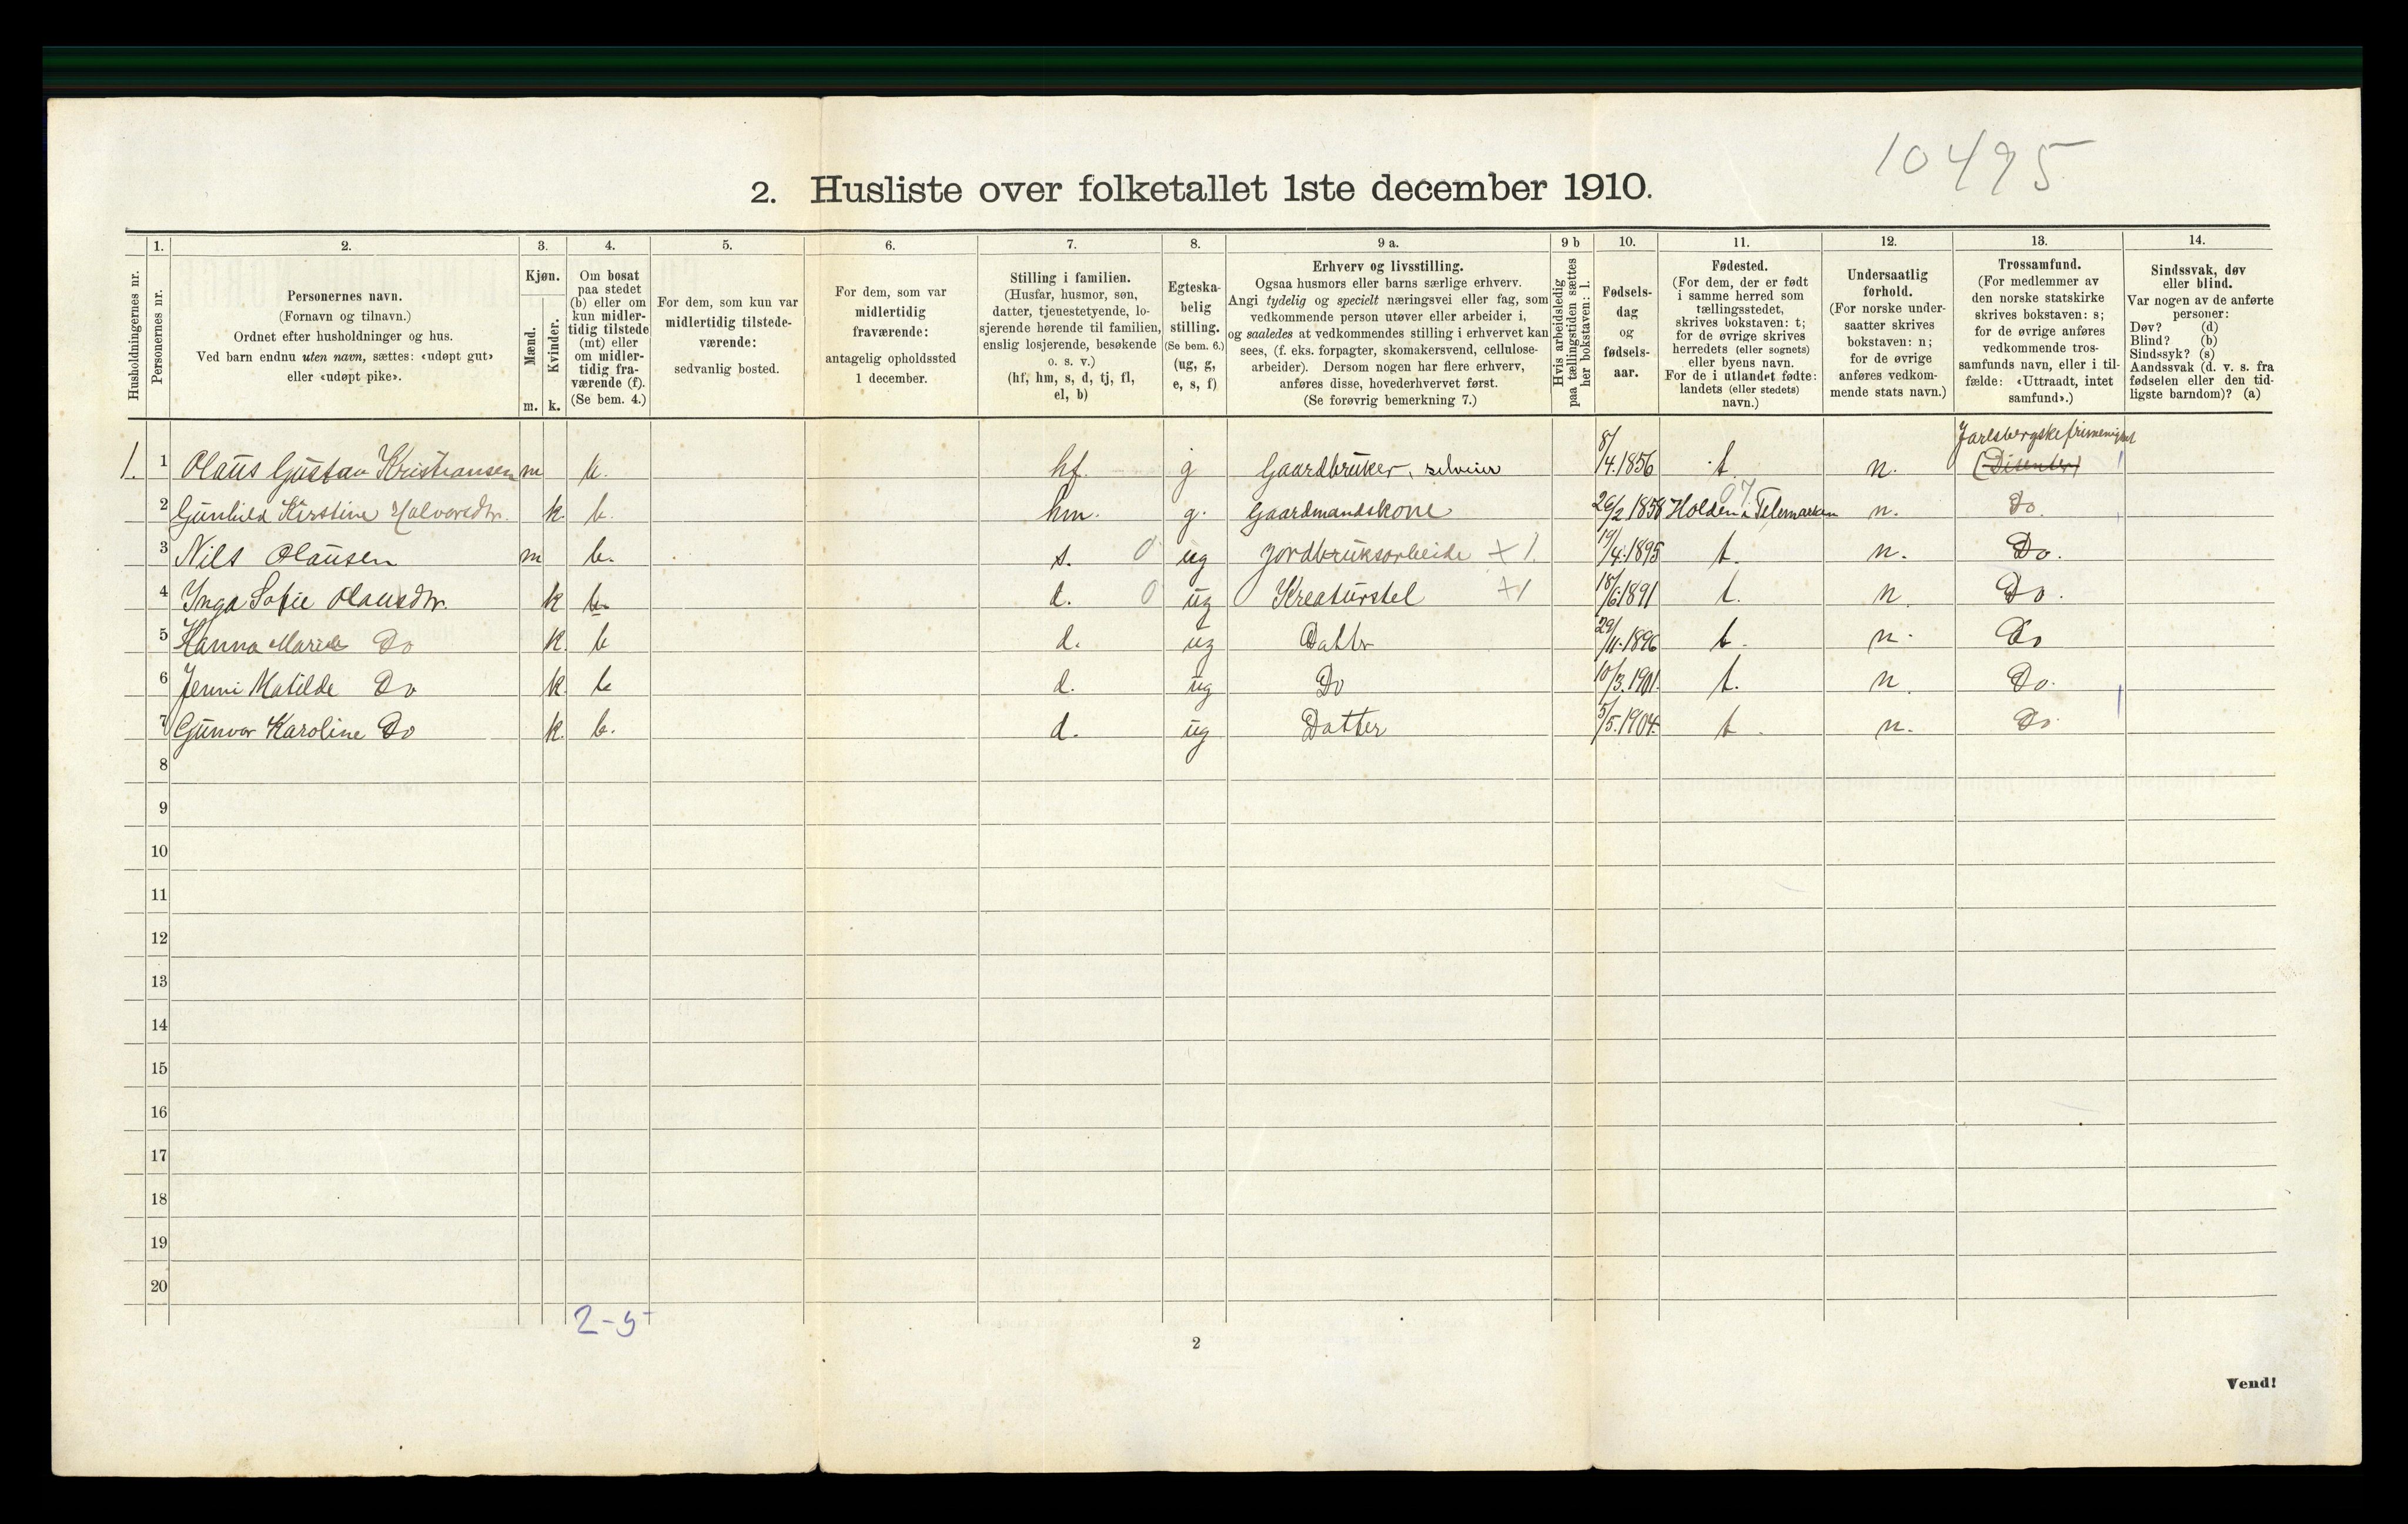 10495
2. Husliste over folketallet 1ste december 1910.
Husholdningernes nr.
1.
Personernes nr.
2.
Personernes navn.
(Fornavn og tilnavn.)
Ordnet efter husholdninger og hus.
Ved barn endnu uten navn, sættes: «udøpt gut»
eller «udøpt pike».
3.
Kjøn.
Mænd.
Kvinder.
m. k.
4.
Om bosat
paa stedet
(b) eller om
kun midler-
tidig tilstede
(mt) eller
om midler-
tidig fra-
værende (f).
(Se bem. 4.)
5.
For dem, som kun var
midlertidig tilstede-
værende:
sedvanlig bosted.
6.
For dem, som var
midlertidig
fraværende:
antagelig opholdssted
1 december.
7.
Stilling i familien.
(Husfar, husmor, søn,
datter, tjenestetyende, lo-
sjerende hørende til familien,
enslig losjerende, besøkende
o. s. v.)
(hf, hm, s, d, tj, fl,
el, b)
8.
Egteska-
belig
stilling.
(Se bem. 6.)
(ug, g,
e, s, f)
9 a.
Erhverv og livsstilling.
Ogsaa husmors eller barns særlige erhverv.
Angi tydelig og specielt næringsvei eller fag, som
vedkommende person utøver eller arbeider i,
og saaledes at vedkommendes stilling i erhvervet kan
sees, (f. eks. forpagter, skomakersvend, cellulose-
arbeider). Dersom nogen har flere erhverv,
anføres disse, hovederhvervet først.
(Se forøvrig bemerkning 7.)
9 b
Hvis arbeidsledig
paa tællingstiden sættes
her bokstaven: l.
10.
Fødsels-
dag
og
fødsels-
aar.
11.
Fødested.
(For dem, der er født
i samme herred som
tællingsstedet,
skrives bokstaven: t;
for de øvrige skrives
herredets (eller sognets)
eller byens navn.
For de i utlandet fødte:
landets (eller stedets)
navn.)
12.
Undersaatlig
forhold.
(For norske under-
saatter skrives
bokstaven: n;
for de øvrige
anføres vedkom-
mende stats navn.)
13.
Trossamfund.
(For medlemmer av
den norske statskirke
skrives bokstaven: s;
for de øvrige anføres
vedkommende tros-
samfunds navn, eller i til-
fælde: «Uttraadt, intet
samfund».)
14.
Sindssvak, døv
eller blind.
Var nogen av de anførte
personer:
Døv? (d)
Blind? (b)
Sindssyk? (s)
Aandssvak (d. v. s. fra
fødselen eller den tid-
ligste barndom)? (a)
Jarlsbergske frimenighet
1. 1 Olaus Gustav Kristiansen m b. hf. g Gaardbruker, selveier 8/4.1856 t n. (Disenter)
2 Gunhild Kirstine Halvorsdtr. k. b. hm. g. Gaardmandskone 26/2.1858 Holden i Telemarken 07 n. Do.
3 Nils Olausen m b. s. 0 ug Jordbruksarbeide +1. 19/4.1895 t. n. Do.
4 Inga Sofie Olausdtr. k b. d. 0 ug Kreaturstel +1 18/6.1891 t. n. Do.
5 Hanna Marie Do k. b d. ug Datter 29/11.1896 t. n. Do
6 Jenni Matilde Do k. b d. ug Do 10/3.1901. t. n. Do.
7 Gunvor Karoline Do k. b. d. ug Datter 5/5.1904. t. n. Do.
8
9
10
11
12
13
14
15
16
17
18
19
20
2-5
2
Vend!